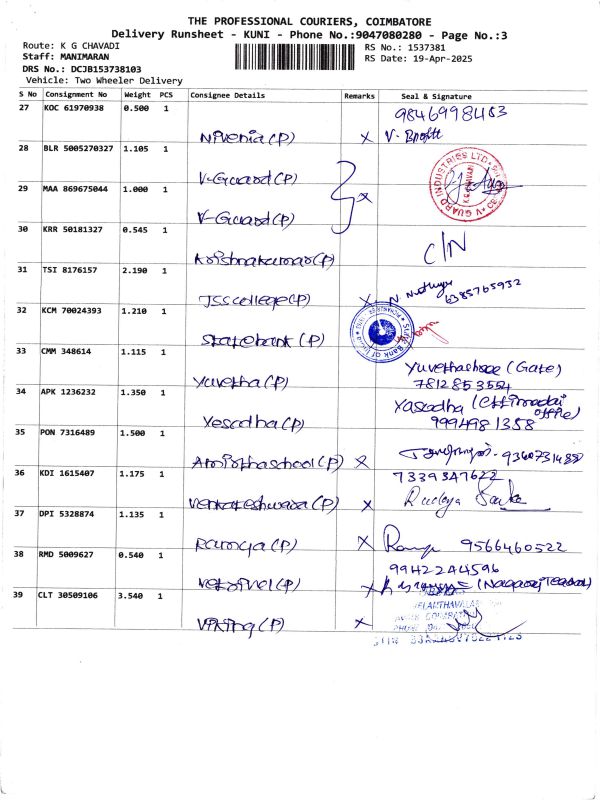 THE PROFESSIONAL COURIERS, COIMBATORE
Delivery Runsheet - KUNI - Phone No.:9047080280 - Page No.:3
Route: K G CHAVADI
RS No.: 1537381
Staff: MANIMARAN
RS Date: 19-Apr-2025
DRS No.: DCJB153738103
Vehicle: Two Wheeler Delivery
S No Consignment No Weight PCS Consignee Details Remarks Seal & Signature
27 KOC 61970938 0.500 1
9846998483
Nivenia(P) x V.
28 BLR 5005270327 1.105 1
V-Guard(P) x
V GUARD INDUSTRIES LTD
K.G.CHAVADI
29 MAA 869675044 1.000 1
V-Guard(P)
30 KRR 50181327 0.545 1
Krishnakumar(P) C/N
31 TSI 8176157 2.190 1
JSScollege(P) x N.
6385765932
32 KCM 70024393 1.210 1
Statebank(P)
State Bank of India
33 CMM 348614 1.115 1
Yuvetha(P) (Gate)
7812853554
34 APK 1236232 1.350 1
Yasodha (Ettimadai office)
Yesodha(P) 9994981358
35 PON 7316489 1.500 1
Amirthaschool(P) x 9360731488
36 KDI 1615407 1.175 1
7339347622
Venkateshwara(P) x
37 DPI 5328874 1.135 1
Ramya(P) x Ramya 9566460522
38 RMD 5009627 0.540 1
9942244596
Vetrivel(P) x
39 CLT 30509106 3.540 1
Viking(P) x